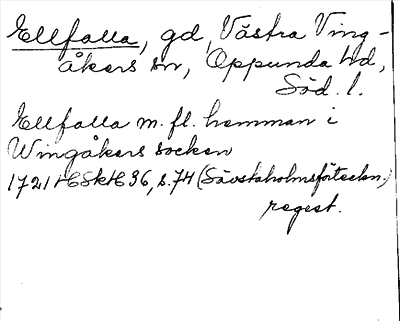 Ellfalla, gd, Västra Ving-
åkers sn, Oppunda hd,
Söd. l.
Ellfalla m. fl. hemman i
Wingåkers socken
1721 HSkH 36, s. 74 (Sävstaholmsförteckn.)
regest.